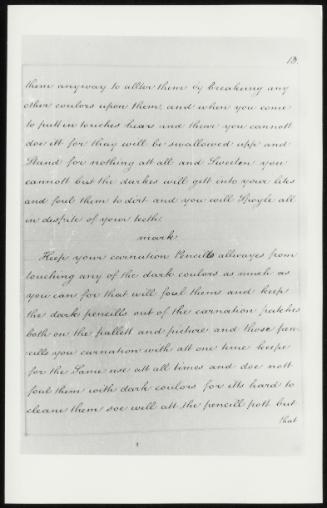 13.
them anyway to allter them by breakeing any
other coulors upon them, and when you come
to putt in touches hears and thear you cannott
doe itt for thay will be swallowed upp and
Stand for nothing att all and Sweeten you
cannott but the darkes will gett into your lites
and foul them to dirt and you will Spoyle all
in dispite of your teeth.
mark
Keep your carnation Pencills allwayes from
touching any of the dark coulors as much as
you can for that will foul them and keep
the dark pencills out of the carnation patches
both on the pallett and picture and those pen-
cills you carnation with att one time keepe
for the Same use att all times and doe nott
foul them with dark coulors for itts hard to
cleane them soe well att the pencill pott but
that